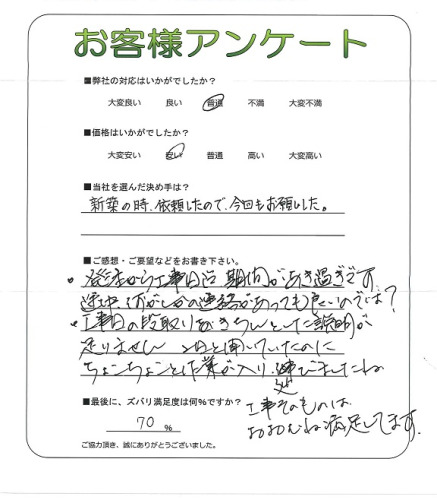 お客様アンケート
■弊社の対応はいかがでしたか？
大変良い 良い 普通 不満 大変不満
■価格はいかがでしたか？
大変安い 安い 普通 高い 大変高い
■当社を選んだ決め手は？
新築の時、依頼したので、今回もお願いした。
■ご感想・ご要望などをお書き下さい。
発注から工事日迄 期間があき過ぎです
途中、何がしかの連絡があっても良いのでは？
工事日の段取りをきちんとした説明が
足りません 2日と聞いていたのに
ちょこちょこと作業が入り、延びましたね
工事そのものは
おおむね満足してます。
■最後に、ズバリ満足度は何%ですか？
70 %
ご協力頂き、誠にありがとうございました。